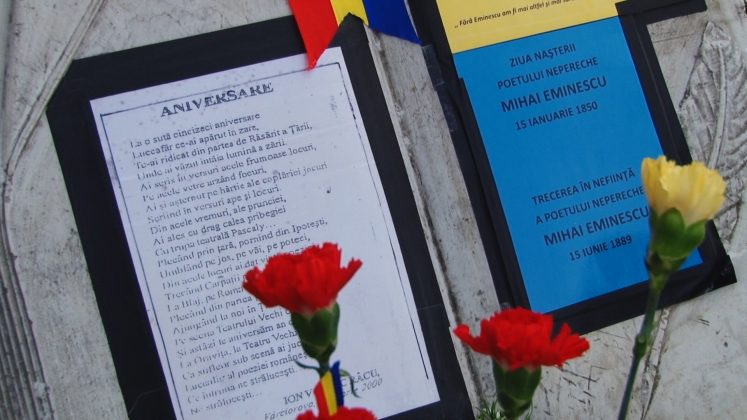 ANIVERSARE
La o sută cincizeci aniversare
Luceafăr ce-ai apărut în zare,
Te-ai ridicat din partea de Răsărit a Țării,
Unde ai văzut întâia lumină a zării
Ai scris în versuri acele frumoase locuri,
Pe acele vetre arzând focuri,
Ai și așternut pe hârtie ale copilăriei jocuri
Scriind în versuri ape și locuri.
Din acele vremuri, ale prunciei,
Ai ales cu drag calea pribegiei
Cu trupa teatrală Pascaly...
Plecând prin țară, pornind din Ipotești,
Umblând pe jos, pe văi, pe poteci,
Din acele locuri ai dat
Trecând Carpații
La Blaj, pe
Plecând din
Ajungând la noi în
Pe scena Teatrului Vechi
Și astăzi le aniversăm
La Oravița, la Teatru Vechi
Ca sufleur sub scenă ai
Luceafăr al poeziei românești
Ce întruna ne strălucești
Ne strălucești...
ION
Fârliorova, 2000
"Fără Eminescu am fi mai altfel și mai
ZIUA NAȘTERII
POETULUI NEPERECHE
MIHAI EMINESCU
15 IANUARIE 1850
TRECEREA ÎN NEFIINȚĂ
A POETULUI NEPERECHE
MIHAI EMINESCU
15 IUNIE 1889